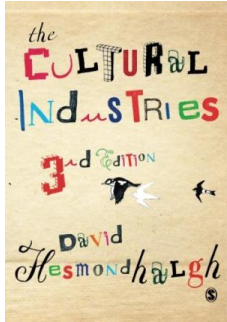 the
CULTURAL
INDUSTRIES
3rd EDITION
David
Hesmondhalgh
S